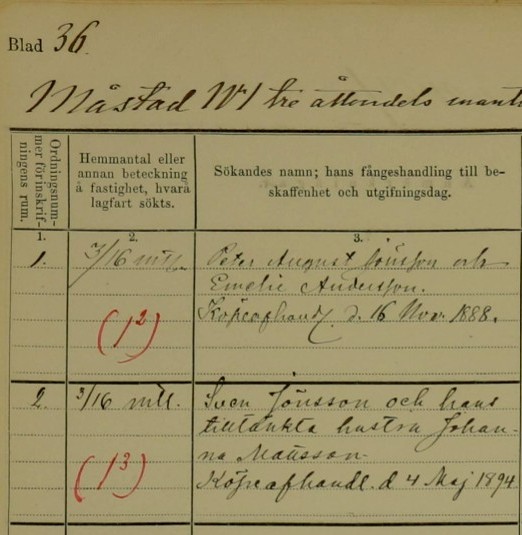 Blad 36.
Måstad Nr 1 tre åttondels mant
Ordningsnum-
mer för inskrif-
ningens rum.
Hemmantal eller
annan beteckning
å fastighet, hvarå
lagfart sökts.
Sökandes namn; hans fångeshandling till be-
skaffenhet och utgifningsdag.
1. 2. 3.
1. 3/16 mtl. Peter August Jönsson och
Emelie Andersson.
(12) Köpeafhandl. d. 16 Nov. 1888.
2. 3/16 mtl. Sven Jönsson och hans
tilltänkta hustru Johan-
na Matsson
(13) Köpeafhandl. d 4 Maj 1894